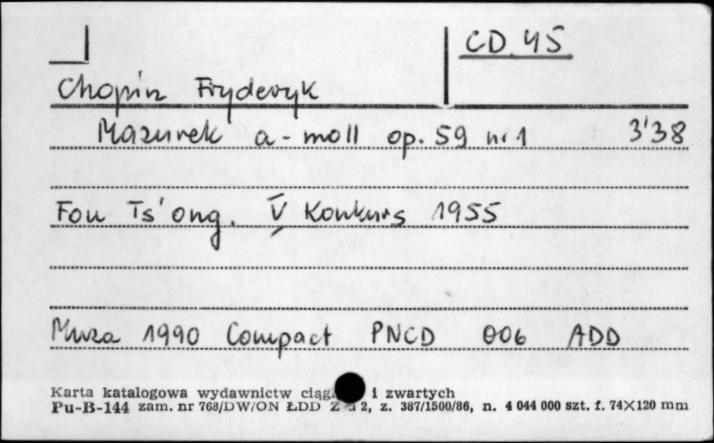 CD 45
Chopin Fryderyk
Mazurek a-moll op. 59 nr 1 3'38
Fou Ts'ong. V Konkurs 1955
Muza 1990 Compact PNCD 006 ADD
Karta katalogowa wydawnictw i zwartych
Pu-B-144 zam. nr 768/DW/ON ŁDD 2, z. 387/1500/86, n. 4 044 000 szt. f. 74×120 mm